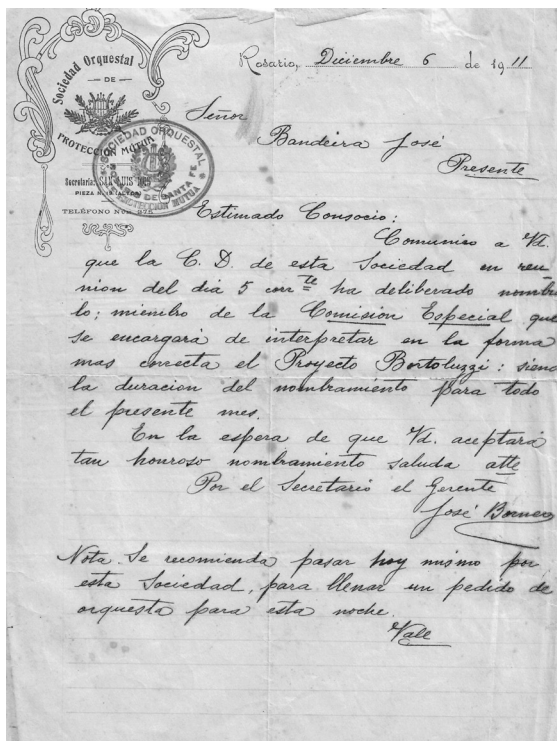 Sociedad Orquestal
DE
PROTECCIÓN MÚTUA
Secretaría: SAN LUIS
PIEZA
TELÉFONO
SOCIEDAD ORQUESTAL
DE SANTA FE
PROTECCIÓN MÚTUA
Rosario, Diciembre 6 de 1911
Señor
Bandeira José
Presente
Estimado Consocio:
Comunico a Vd.
que la C. D. de esta Sociedad en reu
nion del dia 5 corrte ha deliberado nombrar
lo; miembro de la Comision Especial que
se encargará de interpretar en la forma
mas correcta el Proyecto Bortoluzzi: siend
la duracion del nombramiento para todo
el presente mes.
En la espera de que Vd. aceptará
tan honroso nombramiento saluda atte
Por el Secretario el Gerente
José Borneo
Nota. Se recomienda pasar hoy mismo por
esta Sociedad, para llenar un pedido de
orquesta para esta noche.
Vale